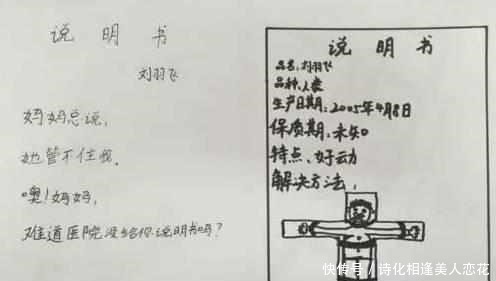 说明书
刘羽飞
妈妈总说，
她管不住我。
噢！妈妈，
难道医院没给你说明书吗？
说明书
品名：刘羽飞
品种：人类
生产日期：2005年4月8日
保质期：未知
特点：好动
解决方法：
快传号／诗化相逢美人恋花